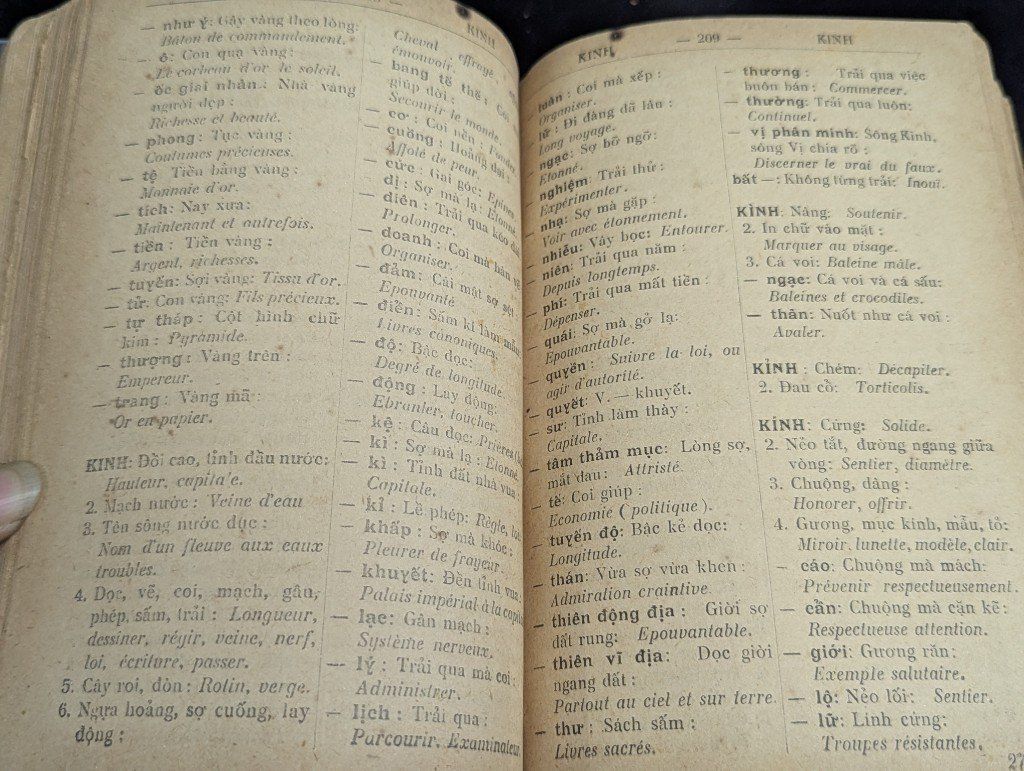 — như ý: Gậy vàng theo lòng:
Bâton de commandement.
— ô: Con quạ vàng:
Le corbeau d'or, le soleil.
— ốc giai nhân: Nhà vàng
người đẹp:
Richesse et beauté.
— phong: Tục vàng:
Coutumes précieuses.
— tệ Tiền bằng vàng:
Monnaie d'or.
— tích: Nay xưa:
Maintenant et autrefois.
— tiền: Tiền vàng:
Argent, richesses.
— tuyến: Sợi vàng: Tissu d'or.
— tử: Con vàng: Fils précieux.
— tự tháp: Cột hình chữ
kim: Pyramide.
— thượng: Vàng trên:
Empereur.
— trang: Vàng mã:
Or en papier.
KINH: Đồi cao, tỉnh đầu nước:
Hauteur, capitale.
2. Mạch nước: Veine d'eau
3. Tên sông nước đục:
Nom d'un fleuve aux eaux
troubles.
4. Dọc, vẽ, coi, mạch, gân,
phép, sấm, trải: Longueur,
dessiner, régir, veine, nerf,
loi, écriture, passer.
5. Cây roi, đòn: Rotin, verge.
6. Ngựa hoảng, sợ cuống, lay
động:
KINH
Cheval effrayé,
émouvoir.
— bang tế thế: Coi
giúp đời:
Secourir le monde.
— cơ: Coi nền: Fonder
— cuồng: Hoảng dại:
Affolé de peur.
— cức: Gai góc: Epines
— dị: Sợ mà lạ: Etonné
— diên: Trải qua kéo dài
Prolonger.
— doanh: Coi mà bán
Organiser.
— đảm: Cái mật sợ sệt
Epouvanté
— điển: Sấm kí làm mẫu
Livres canoniques.
— độ: Bậc dọc:
Degré de longitude.
— động: Lay động:
Ebranler, toucher.
— kệ: Câu đọc: Prières
— kì: Sợ mà lạ: Etonné
— kì: Tỉnh đất nhà vua:
Capitale.
— kỉ: Lề phép: Règle,
— khấp: Sợ mà khóc:
Pleurer de frayeur.
— khuyết: Đền tỉnh vua:
Palais impérial à la
— lạc: Gân mạch:
Système nerveux.
— lý: Trải qua mà coi:
Administrer.
— lịch: Trải qua:
Parcourir. Examinateur
KINH — 209 — KINH
tuân: Coi mà xếp:
Organiser.
lữ: Đi đàng đã lâu:
Long voyage.
— ngạc: Sợ bỡ ngỡ:
Etonné.
— nghiệm: Trải thử:
Expérimenter.
— nhạ: Sợ mà gặp:
Voir avec étonnement.
— nhiễu: Vây bọc: Entourer.
— niên: Trải qua năm:
Depuis longtemps.
— phí: Trải qua mất tiền:
Dépenser.
— quái: Sợ mà gở lạ:
Epouvantable.
— quyền: Suivre la loi, ou
agir d'autorité.
— quyệt: V. — khuyết.
— sư: Tỉnh làm thầy:
Capitale.
— tâm thảm mục: Lòng sợ,
mắt đau: Attristé.
— tế: Coi giúp:
Economie (politique).
— tuyến độ: Bậc kẻ dọc:
Longitude.
— thán: Vừa sợ vừa khen:
Admiration craintive.
— thiên động địa: Giời sợ
đất rung: Epouvantable.
— thiên vĩ địa: Dọc giời
ngang đất:
Partout au ciel et sur terre
— thư: Sách sấm:
Livres sacrés.
— thương: Trải qua việc
buôn bán: Commercer.
— thường: Trải qua luôn:
Continuel.
— vị phân minh: Sông Kinh,
sông Vị chia rõ:
Discerner le vrai du faux.
bất —: Không từng trải: Inouï.
KÌNH: Nâng: Soutenir.
2. In chữ vào mặt:
Marquer au visage.
3. Cá voi: Baleine mâle.
— ngạc: Cá voi và cá sấu:
Baleines et crocodiles.
— thân: Nuốt như cá voi:
Avaler.
KỈNH: Chém: Décapiter.
2. Đau cổ: Torticolis.
KÍNH: Cứng: Solide.
2. Nẻo tắt, đường ngang giữa
vòng: Sentier, diamètre.
3. Chuộng, dâng:
Honorer, offrir.
4. Gương, mục kính, mẫu, tỏ:
Miroir, lunette, modèle, clair.
— cáo: Chuộng mà mách:
Prévenir respectueusement.
— cẩn: Chuộng mà cặn kẽ:
Respectueuse attention.
— giới: Gương răn:
Exemple salutaire.
— lộ: Nẻo lối: Sentier.
— lữ: Lính cứng:
Troupes résistantes.
27